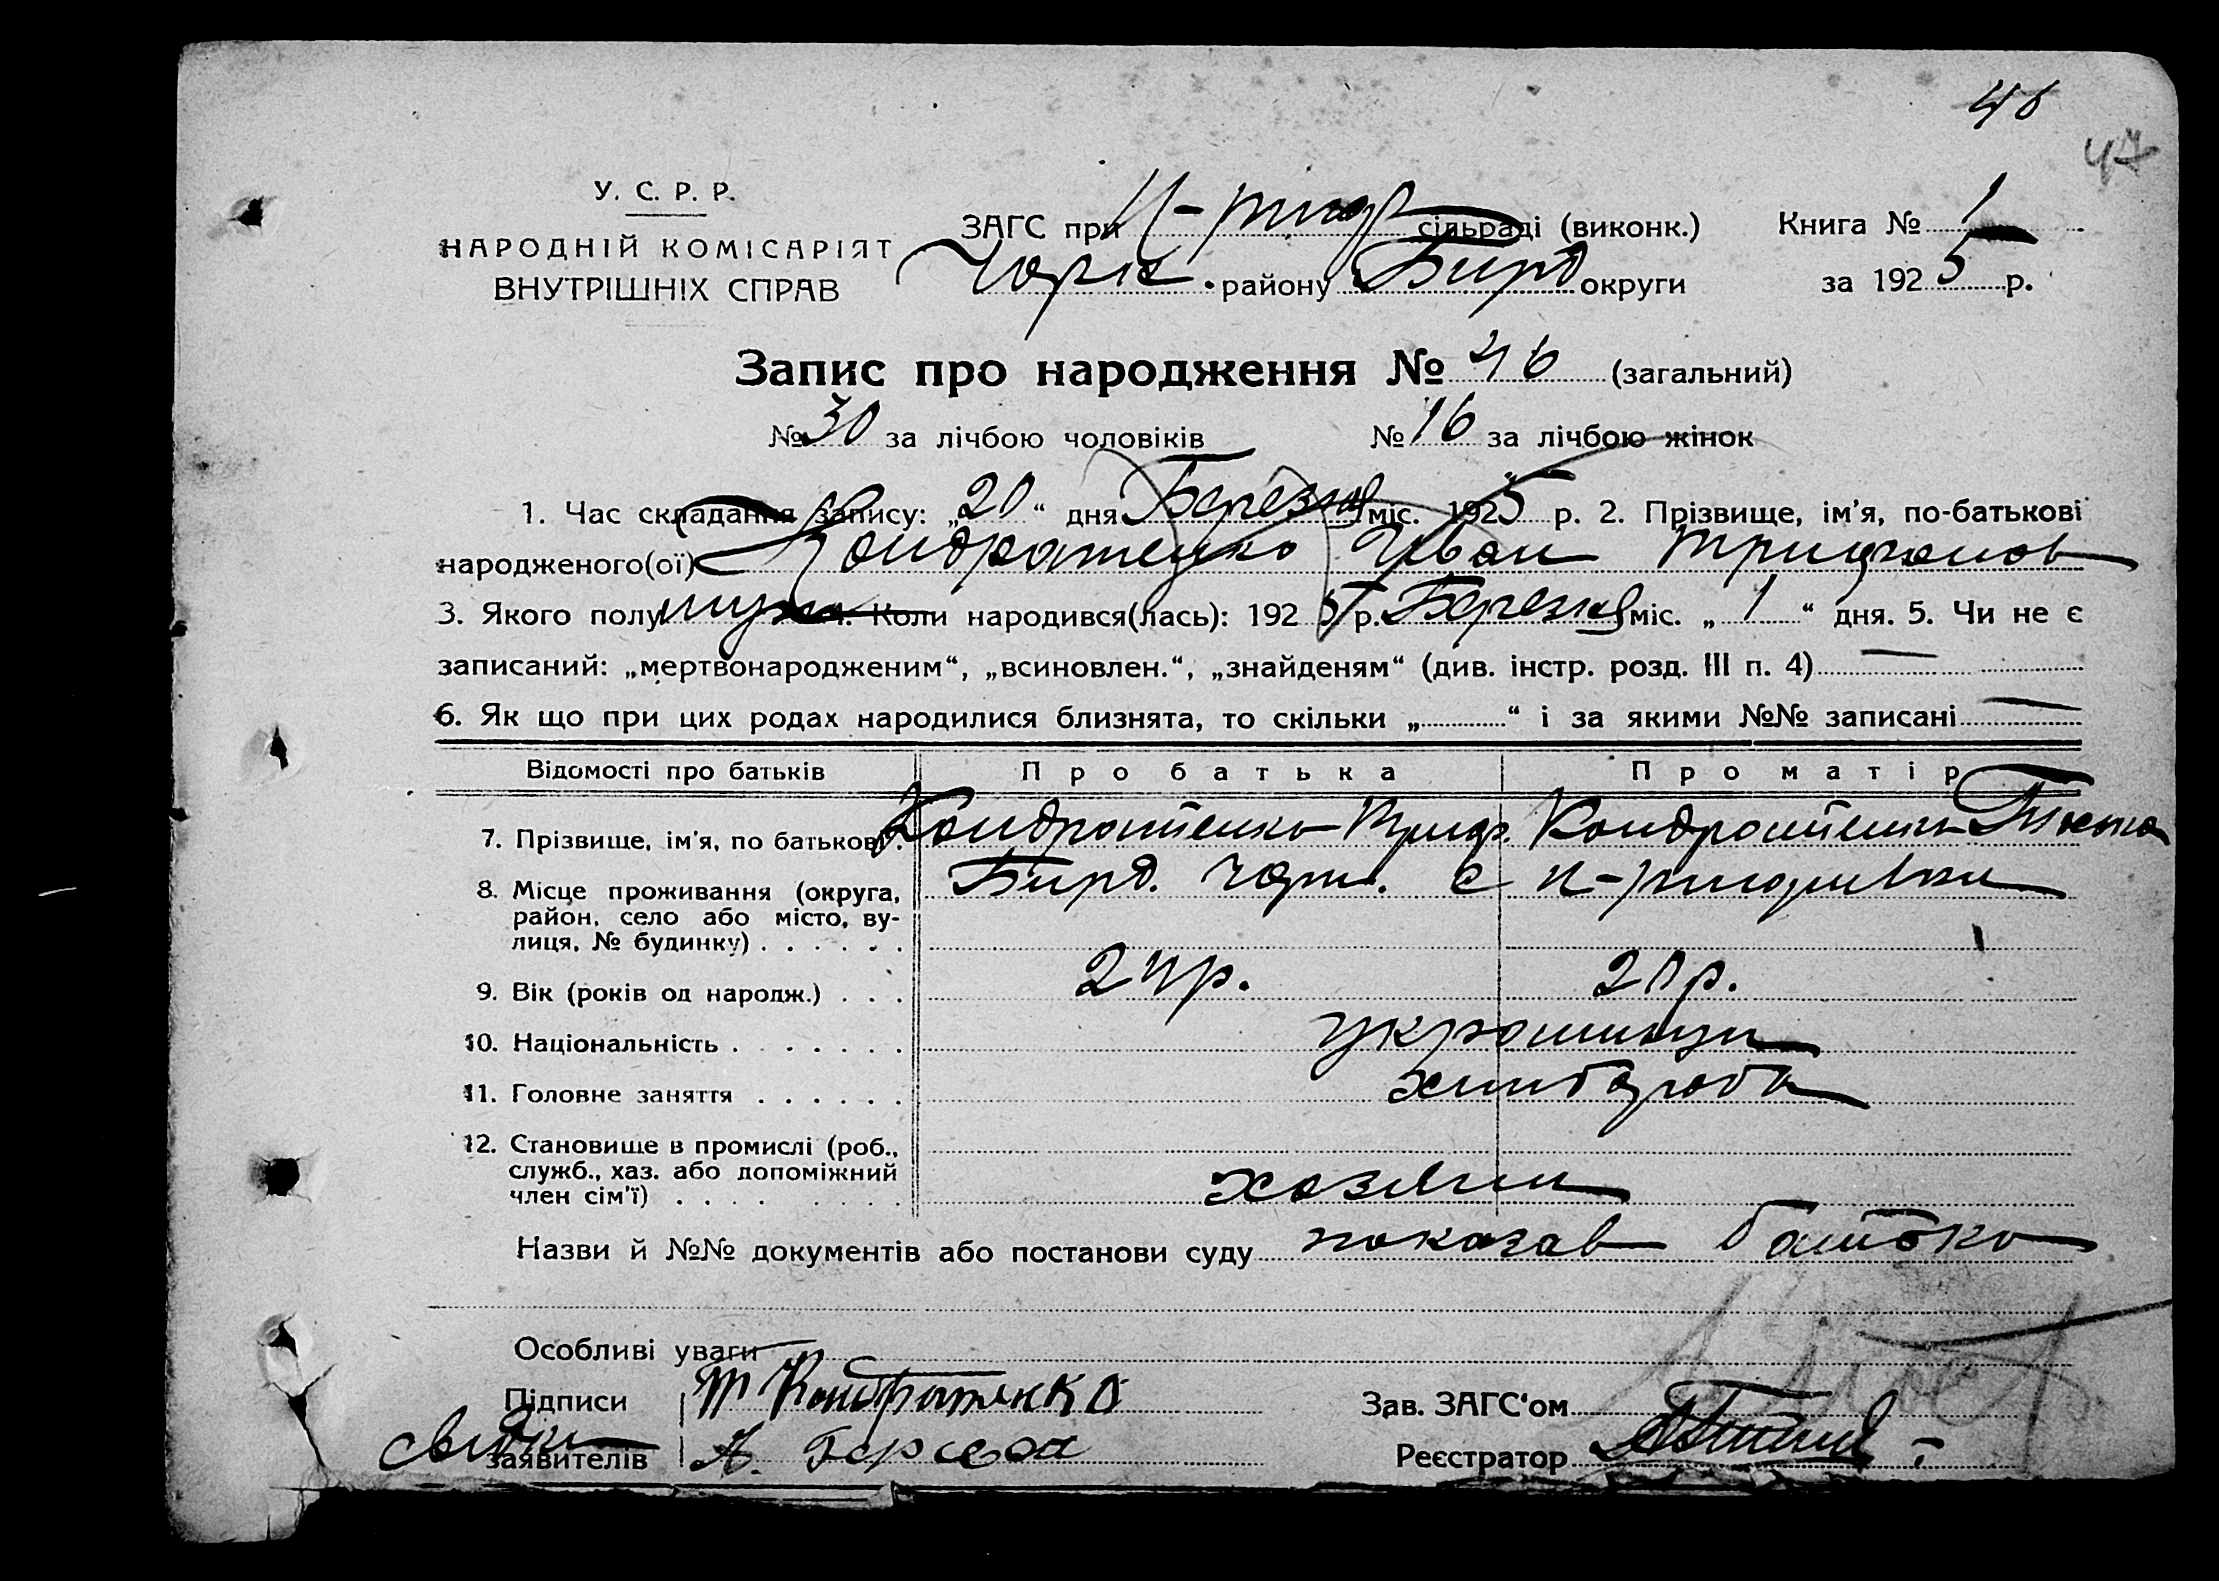 46
47
У. С. Р. Р.
НАРОДНІЙ КОМІСАРІЯТ
ВНУТРІШНІХ СПРАВ
ЗАГС при сільраді (виконк.)
району Бирд округи
Книга № 1
за 1925 р.
Запис про народження № 46 (загальний)
№ 30 за лічбою чоловіків № 16 за лічбою жінок
1. Час складання запису: „20“ дня Березня міс. 1925 р. 2. Прізвище, ім'я, по-батькові
народженого(ої) Кондратенко Иван Трифонов
3. Якого полу муж 4. Коли народився(лась): 1925 р. Березня міс. „1“ дня. 5. Чи не є
записаний: „мертвонародженим“, „всиновлен.“, „знайденям“ (див. інстр. розд. III п. 4) —
6. Як що при цих родах народилися близнята, то скільки „ “ і за якими №№ записані —
Відомості про батьків Про батька Про матір
7. Прізвище, ім'я, по батькові. Кондратенко Триф. Кондратенко
8. Місце проживання (округа, район, село або місто, вулиця, № будинку) Бирд. Черн. с
9. Вік (років од народж.) 24 р. 20 р.
10. Національність украинци
11. Головне заняття хлибороби
12. Становище в промислі (роб., служб., хаз. або допоміжний член сім'ї) хозяин
Назви й №№ документів або постанови суду показав батько
Особливі уваги
Підписи Т Кондратенко
заявителів А.
Зав. ЗАГС'ом
Реєстратор